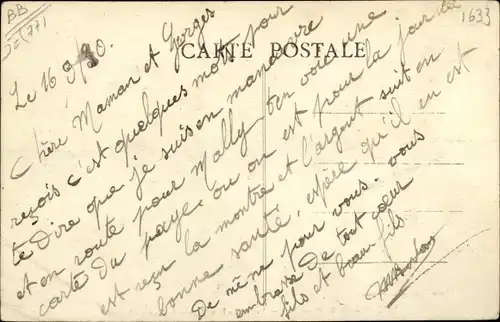 BB
1633
CARTE POSTALE
Le 16 9/30.
Chère Maman et Gorges
reçois c'est quelques mots pour
te dire que je suis en manœuvre
et en route pour Mally ten voic une
carte du paye. ou on est pour la jour
est reçu la montre et l'argent suit en
bonne santé. espère qu'il en est
De même pour vous. vous
embrasse de tout cœur
fils et beau-fils